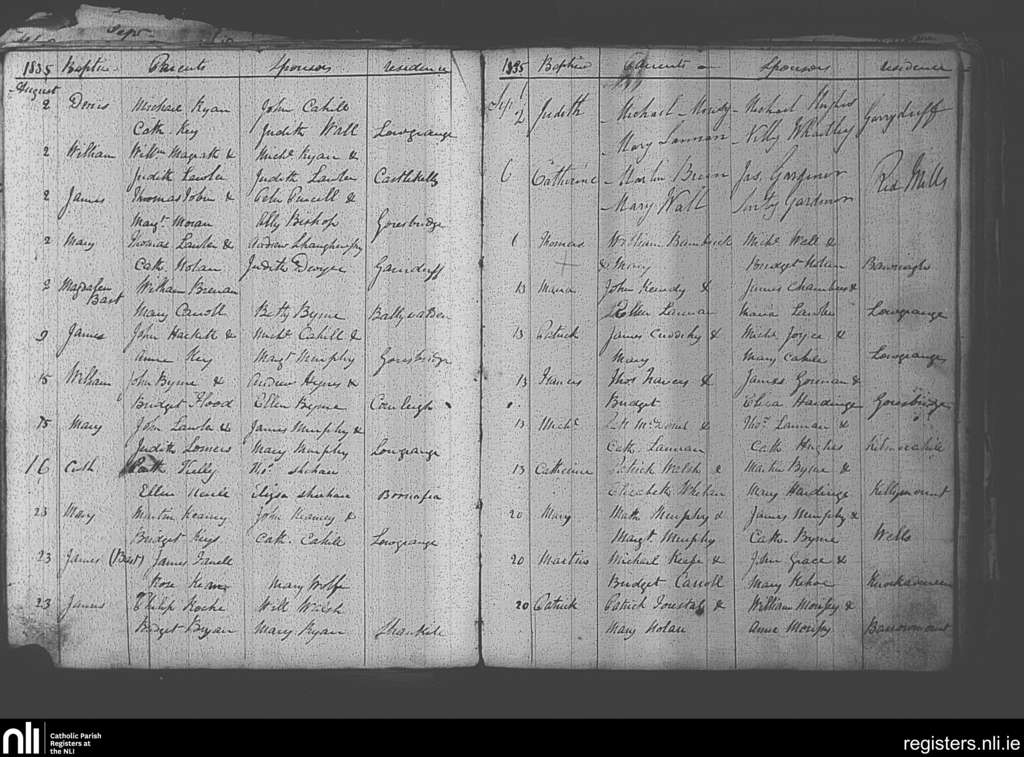 1835 Baptm Parents Sponsors residence
August
2 Denis Michael Ryan John Cahill
Cath Key Judith Wall Lowgrange
2 William Willm Magrath & Michl Ryan &
Judith Lawler Judith Lawler Castlekelly
2 James Thomas Tobin & Purcell &
Margt Moran Ally Bishop Goresbridge
2 Mary Thomas Lawler & Andrew Shaughnessy
Cath Nolan Judith Dwyer
2 Magdalen William Brenan
Bast
Mary Carroll Betty Byrne Ballywatson
9 James John Hackett & Michl Cahill &
Anne Key Margt Murphy Goresbridge
15 William John Byrne & Andrew Hynes &
Bridget Flood Ellen Byrne Courleigh
15 Mary John Lawler & James Murphy &
Judith Somers Mary Murphy Lowgrange
16 Cath Kelly Thos Shehan
Ellen Neile Eliza Shehan
23 Mary Martin Keaney John Keaney &
Bridget Keys Cath. Cahill Lowgrange
23 James (Bast) James Farrell
Rose Mary Wolfe
23 James Philip Roche Will Walsh
Bridget Bryan Mary Ryan Shankill
1835 Baptm Parents Sponsors residence
Sep
2 Judith Michael Michael Hughes Garryduff
Mary Lannan Kitty Whartley
6 Catherine Martin Breen Jas. Gardiner Red Mills
Mary Wall Gardiner
6 Thomas William Michl Wall &
& Mary Bridget Nolan
13 Maria John Kenedy & James Chambers &
Ellen Lannan Maria Lawler Lowgrange
13 Patrick James & Michl Joyce &
Mary Mary Cahill Lowgrange
13 Francis Thos Travers & James Gorman &
Bridget Eliza Hardinge Goresbridge
13 Michl & Thos Lannan &
Cath Lannan Cath Hughes
13 Catherine Patrick Welsh & Martin Byrne &
Elizabeth Whelan Mary Hardinge Kellymount
20 Mary Math Murphy & James Murphy &
Margt Murphy Cath Byrne Wells
20 Martin Michael Keefe & John Grace &
Bridget Carroll Mary Kehoe
20 Patrick Patrick Forestal & William &
Mary Nolan Anne Barrowmount
nli Catholic Parish
Registers at
the NLI
registers.nli.ie